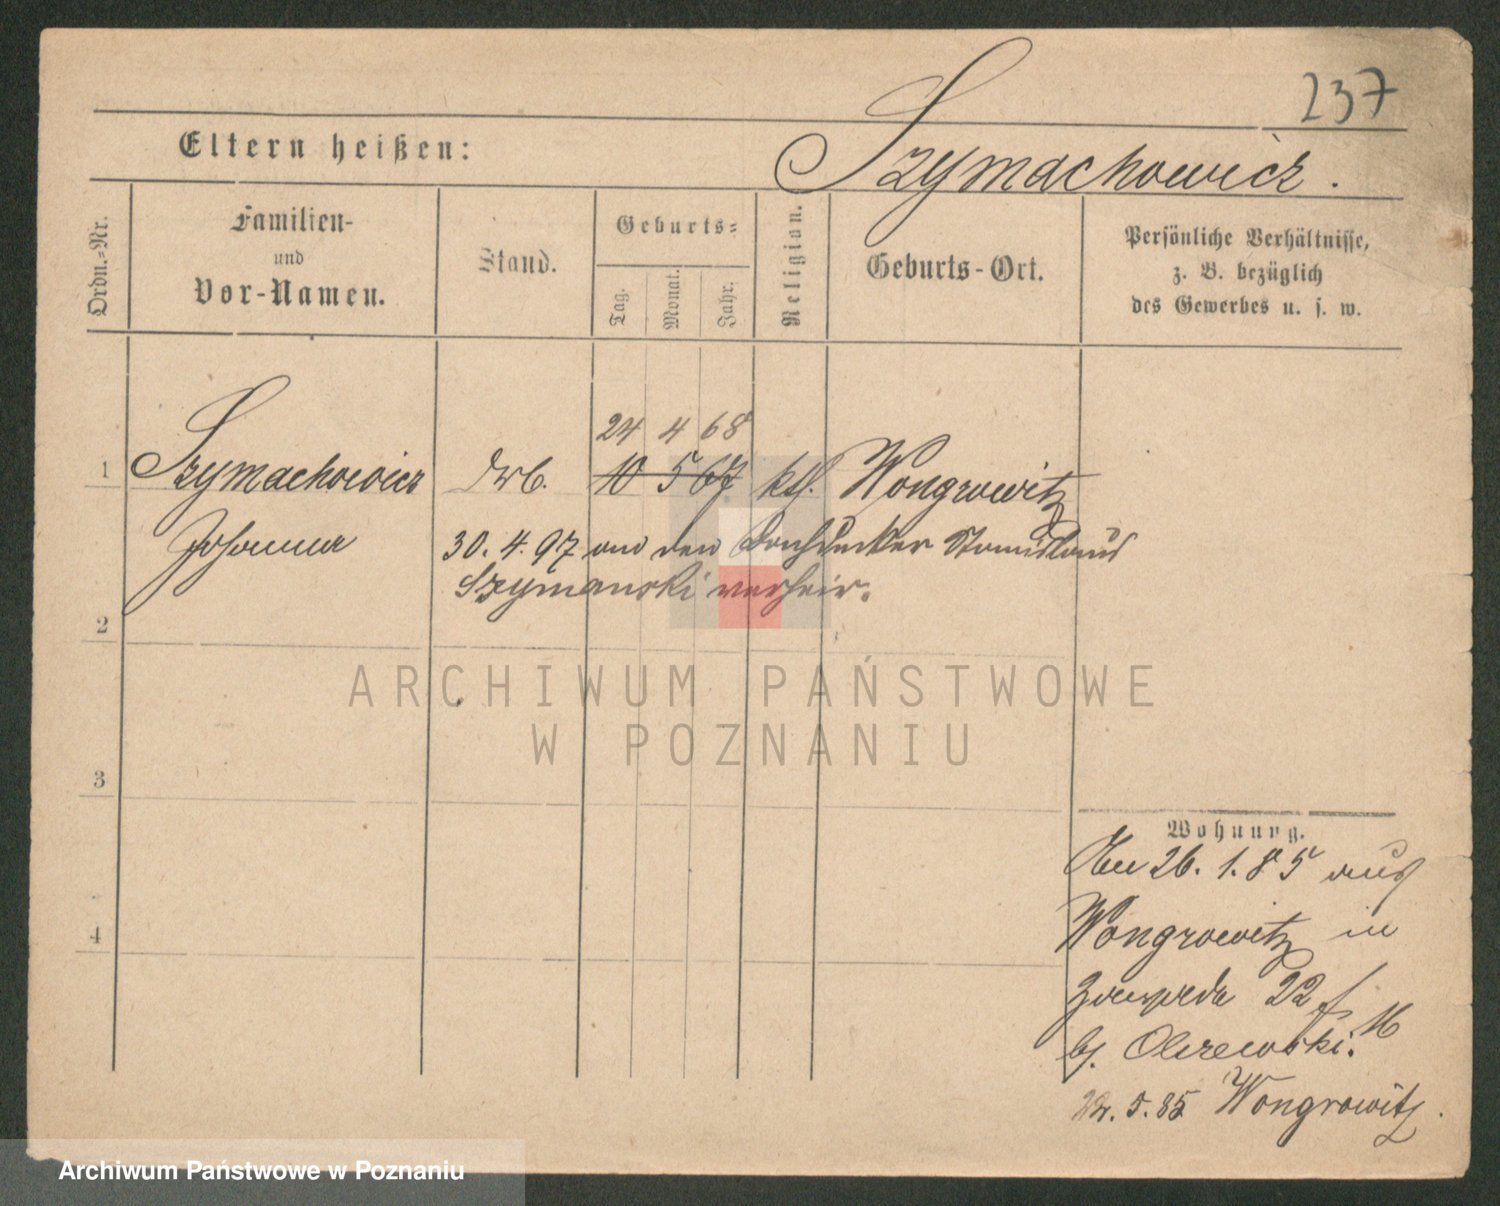 237
Eltern heißen:
Szymachowicz.
Ordn.-Nr.
Familien-
und
Vor-Namen.
Stand.
Geburts-
Tag.
Monat.
Jahr.
Religion.
Geburts-Ort.
Persönliche Verhältnisse,
z. B. bezüglich
des Gewerbes u. s. w.
24 4 68
1 Szymachowicz 10 5 67 kth. Wongrowitz
Johanna 30. 4. 97 an den Dachdecker Stanislaus
Szymanski verheir.
2
3
4
ARCHIWUM PAŃSTWOWE
W POZNANIU
Wohnung.
Den 26. 1. 85 aus
Wongrowitz in
22
b. Olszewski. 16
22. 5. 85 Wongrowitz.
Archiwum Państwowe w Poznaniu